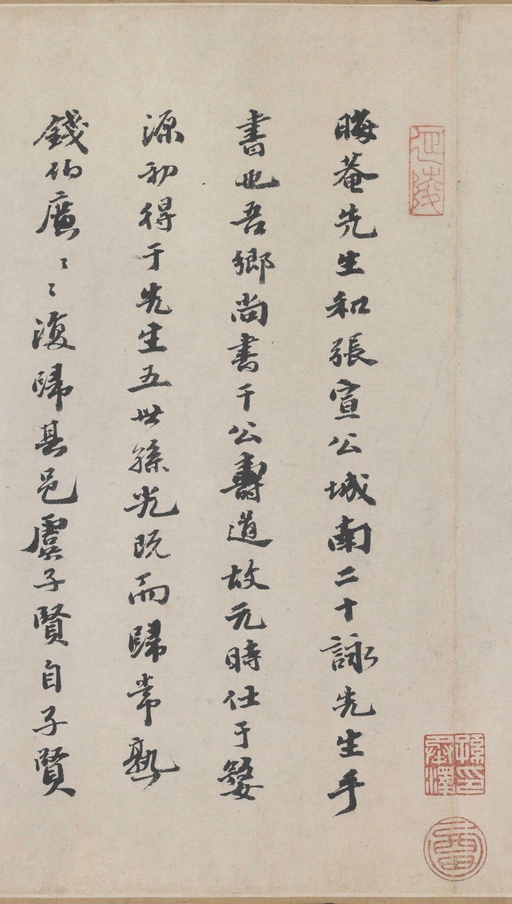 晦菴先生和張宣公城南二十詠先生手
書也吾鄉尚書干公壽道故元時仕于婺
源初得于先生五世孫光既而歸常熟
錢伯廣〻〻復歸其邑虞子賢自子賢
延陵